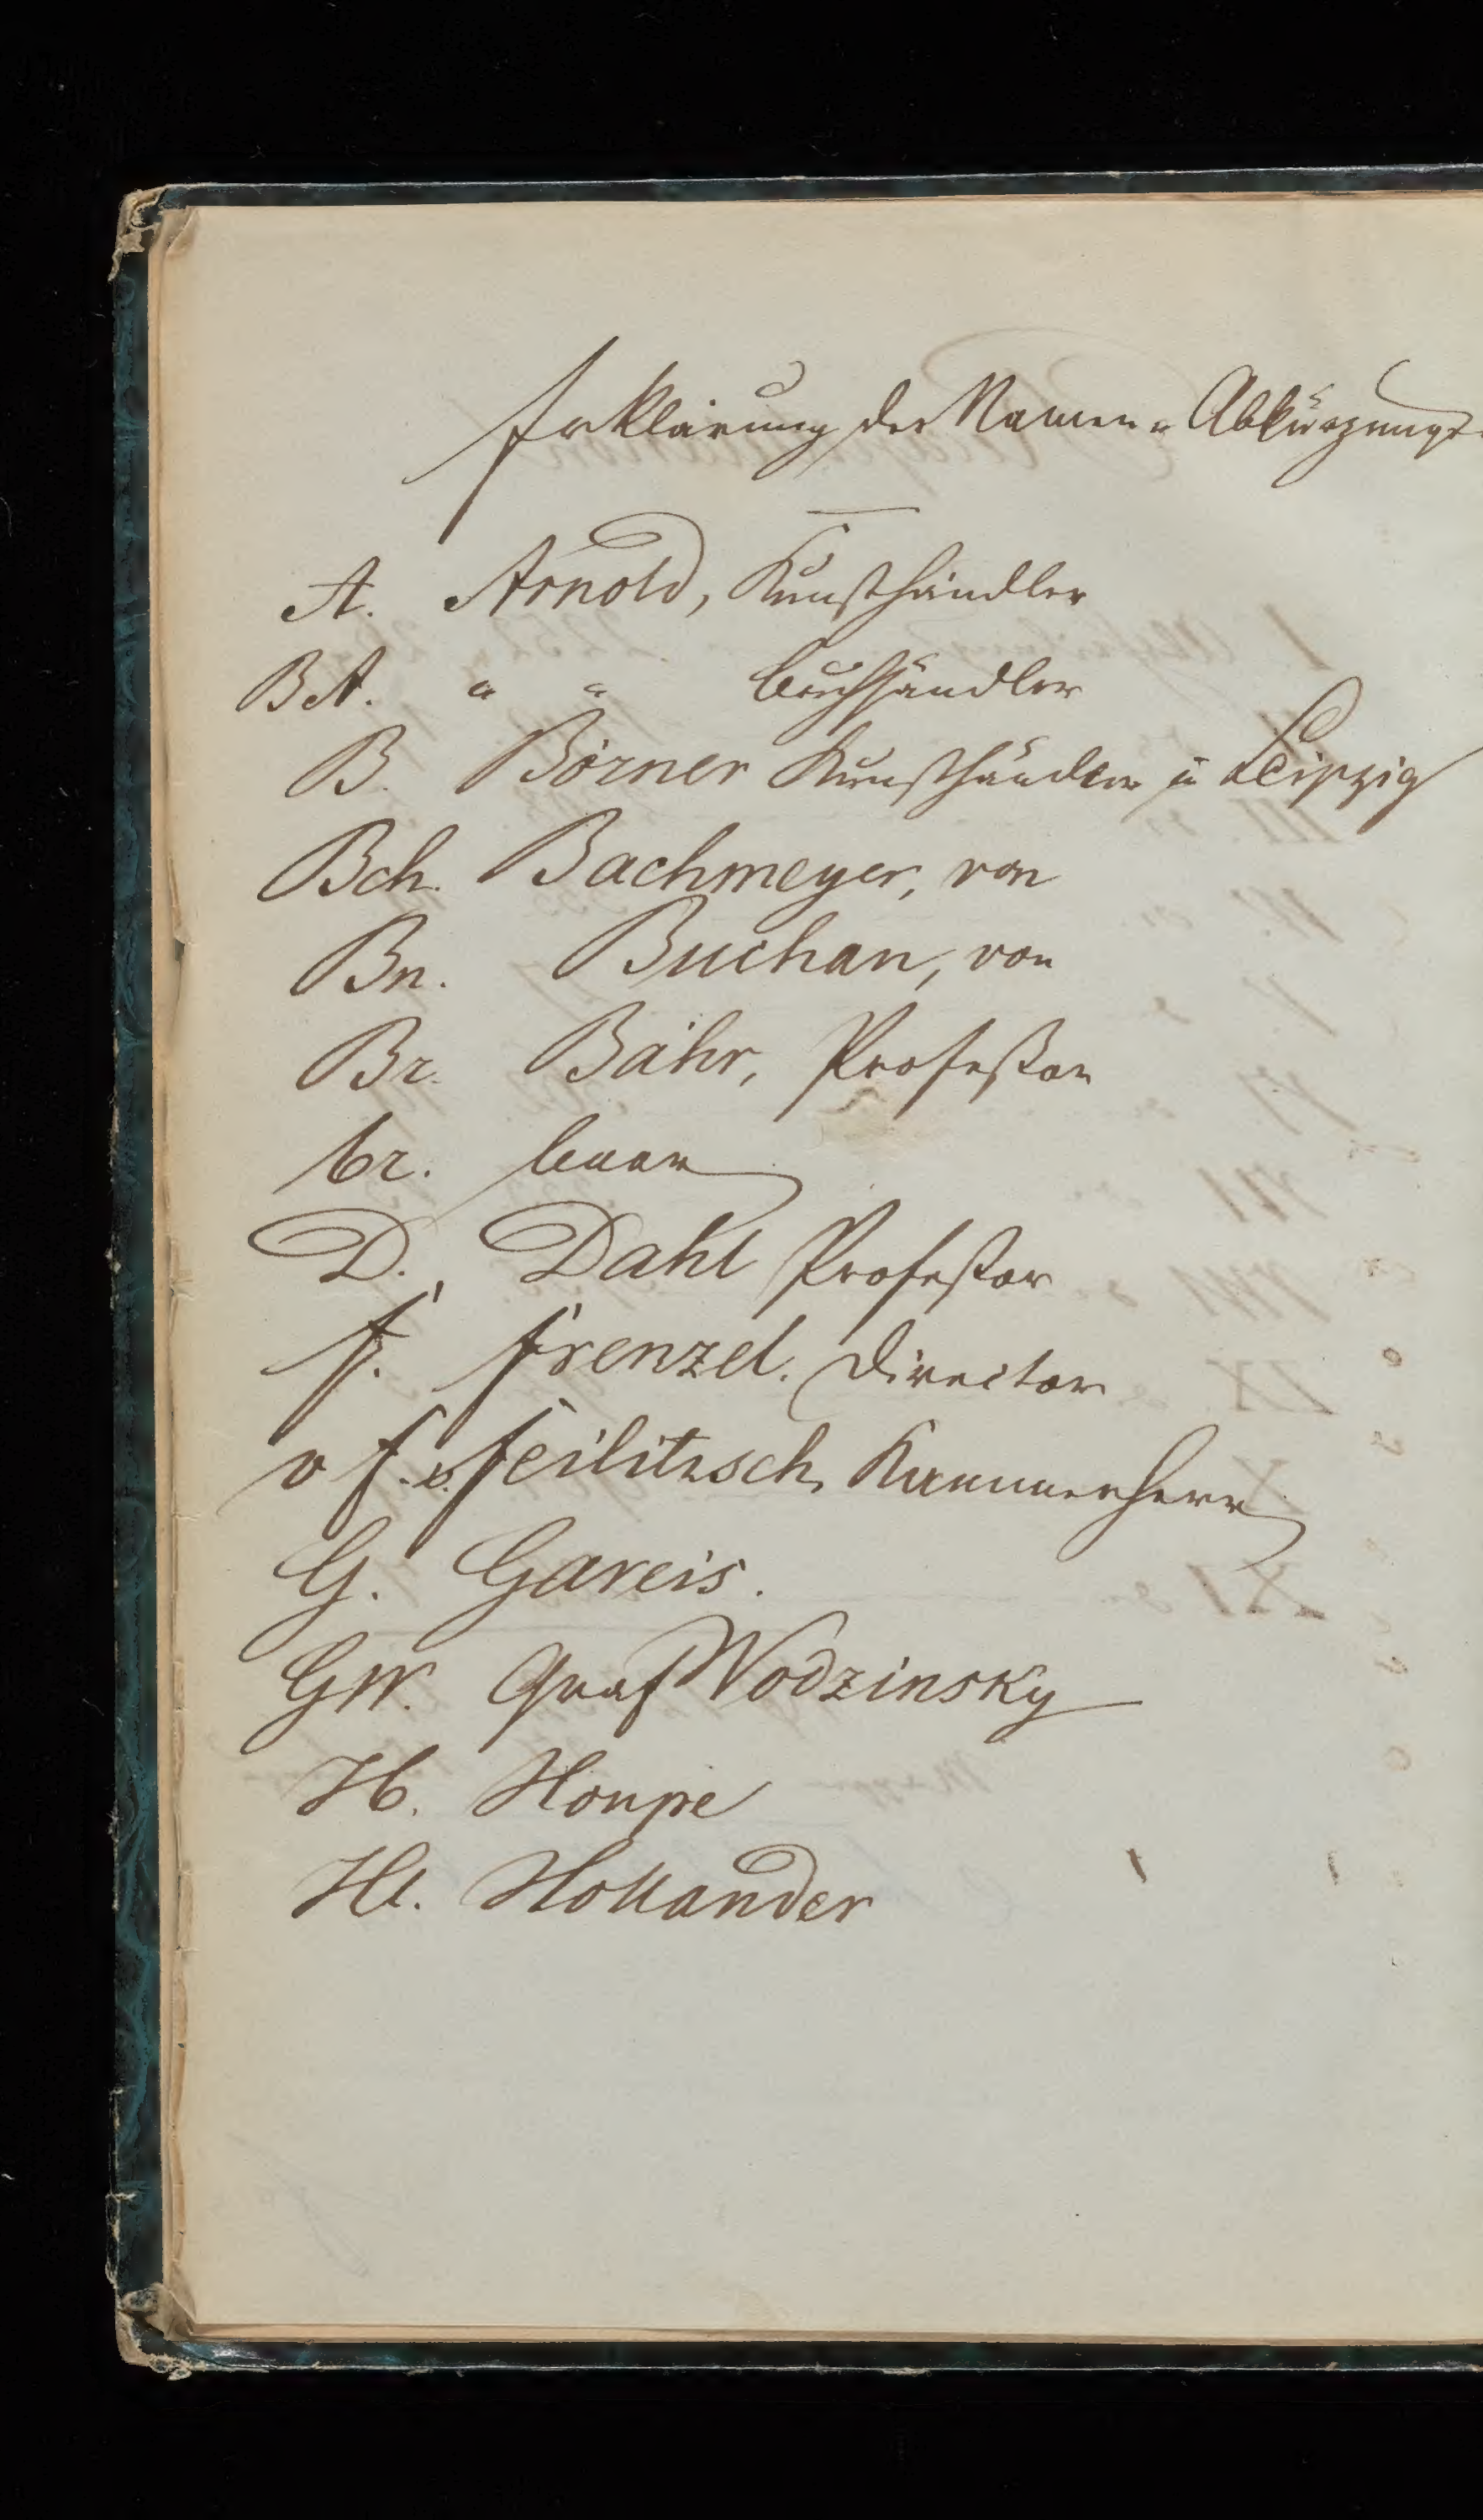 Erklärung der Namen u Abkürzungs-
A. Arnold, Kunsthändler
BA. " " Buchhändler
B. Börner Kunsthändler in Leipzig
Bch. Bachmeyer, von
Bn. Buchan, von
Br. Bähr, Profeßor
br. baar
D. Dahl Profeßor
F. Frenzel. Director
v F. v. Feilitzsch, Kammerherr
G. Gareis.
GW. Graf Wodzinsky
H. Houpe
Hl. Hollander